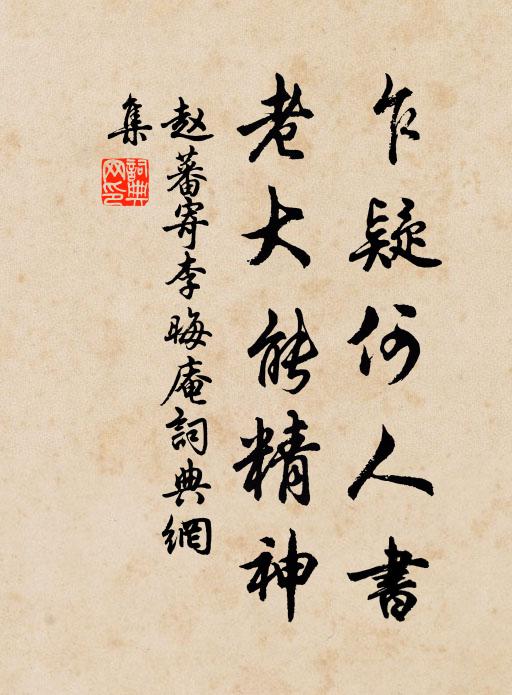 乍疑何人書
老大能精神
赵蕃寄李晦庵詞典網
集
詞典网印